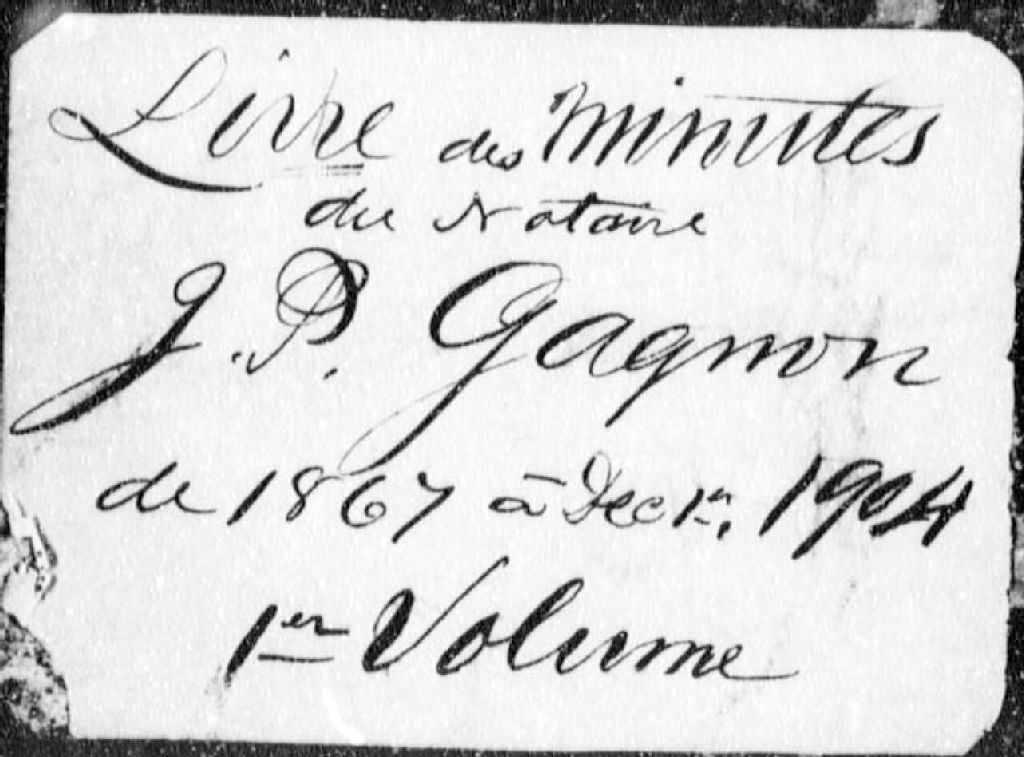 Livre des minutes
du Notaire
J. P. Gagnon
de 1867 à Dec 1er, 1904
1er Volume